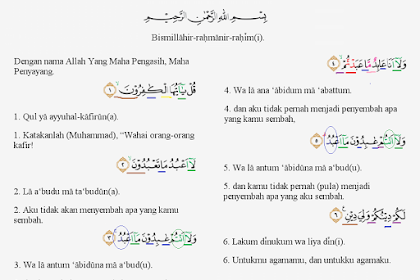 بِسْمِ اللَّهِ الرَّحْمَٰنِ الرَّحِيمِ
Bismillāhir-raḥmānir-raḥīm(i).
Dengan nama Allah Yang Maha Pengasih, Maha
Penyayang.
قُلْ يَٰٓأَيُّهَا ٱلْكَٰفِرُونَ ١
1. Qul yā ayyuhal-kāfirūn(a).
1. Katakanlah (Muhammad), “Wahai orang-orang
kafir!
لَآ أَعْبُدُ مَا تَعْبُدُونَ ٢
2. Lā a‘budu mā ta‘budūn(a).
2. Aku tidak akan menyembah apa yang kamu
sembah,
وَلَآ أَنتُمْ عَٰبِدُونَ مَآ أَعْبُدُ ٣
3. Wa lā antum ‘ābidūna mā a‘bud(u).
وَلَآ أَنَا۠ عَابِدٌ مَّا عَبَدتُّمْ ٤
4. Wa lā ana ‘ābidum mā ‘abattum.
4. dan aku tidak pernah menjadi penyembah apa
yang kamu sembah,
وَلَآ أَنتُمْ عَٰبِدُونَ مَآ أَعْبُدُ ٥
5. Wa lā antum ‘ābidūna mā a‘bud(u).
5. dan kamu tidak pernah (pula) menjadi
penyembah apa yang aku sembah.
لَكُمْ دِينُكُمْ وَلِىَ دِينِ ٦
6. Lakum dīnukum wa liya dīn(i).
6. Untukmu agamamu, dan untukku agamaku.